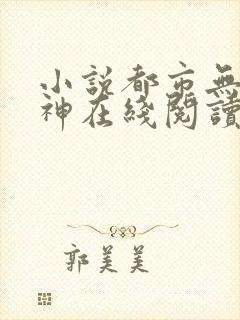 小說都市無
神在綫閱讀
郭美美